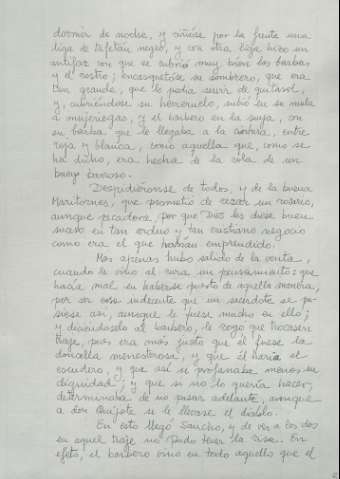 dormir de noche, y ciñóse por la frente una
liga de tafetán negro, y con otra liga hizo un
antifaz con que se cubrió muy bien las barbas
y el rostro; encasquetóse su sombrero, que era
tan grande, que le podía servir de quitasol,
y, cubriéndose su herreruelo, subió en su mula
a mujeriegas, y el barbero en la suya, con
su barba que le llegaba a la cintura, entre
roja y blanca, como aquella que, como se
ha dicho, era hecha de la cola de un
buey barroso.
Despidiéronse de todos, y de la buena
Maritornes, que prometió de rezar un rosario,
aunque pecadora, por que Dios les diese buen
suceso en tan arduo y tan cristiano negocio
como era el que habían emprendido.
Mas apenas hubo salido de la venta,
cuando le vino al cura un pensamiento: que
hacía mal en haberse puesto de aquella manera,
por ser cosa indecente que un sacerdote se pu-
siese así, aunque le fuese mucho en ello;
y diciéndoselo al barbero, le rogó que trocasen
trajes, pues era más justo que él fuese la
doncella menesterosa, y que él haría el
escudero, y que así se profanaba menos su
dignidad; y que si no lo quería hacer,
determinaba de no pasar adelante, aunque
a don Quijote se le llevase el diablo.
En esto llegó Sancho, y de ver a los dos
en aquel traje no pudo tener la risa. En
efeto, el barbero vino en todo aquello que el